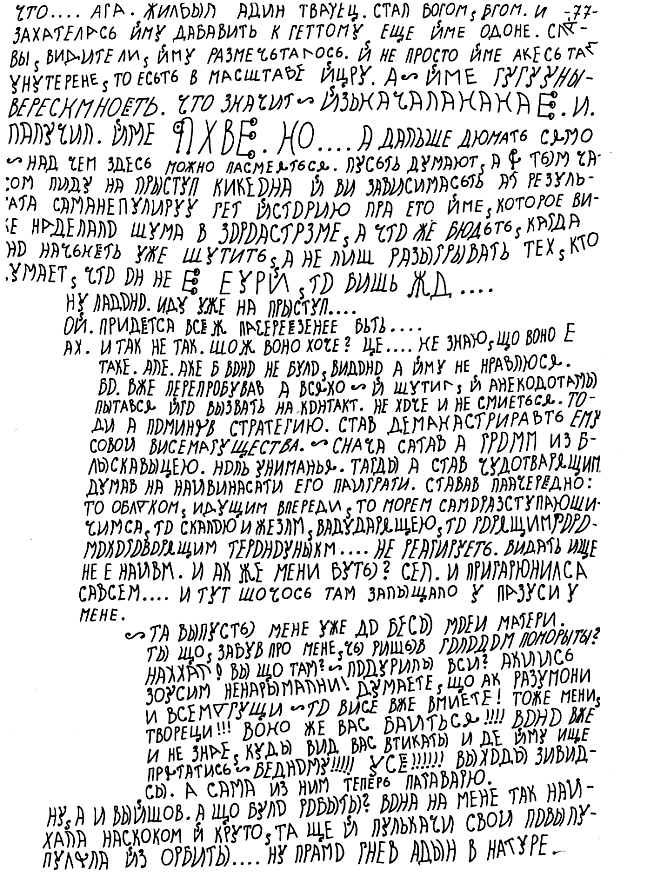 ЧТО.... АГА. ЖИЛБЫЛ АДИН ТВАРЕЦ. СТАЛ БОГОМ, ВГОМ. И -77-
ЗАХАТЕЛАСЬ ЙМУ ДАБАВИТЬ К ГЕТТОМУ, ЕЩЕ ЙМЕ ОДОНЕ.
ВЫ, ВИДИТЕ ЛИ, ЙМУ РАЗМЕЧЬТАЛОСЬ. Й НЕ ПРОСТО ЙМЕ АКЕСЬ ТАК
УНУТЕРЕНЕ, ТО ЕСЬТЬ В МАСШТАБЕ ЙЦРУ. А ~ ЙМЕ ГУГУУНЫ-
ВЕРЕСКМНОСТЬ. ЧТО ЗНАЧИТ ~ ЙЗЬНАЧАЛАНАНАЕ. И.
ПАЛУЧИЛ. ЙМЕ ЯХВЕ. НО.... А ДАЛЬШЕ ДЮМАТЬ СЯМО
~ НАД ЧЕМ ЗДЕСЬ МОЖНО ПАСМЕЯТЬСЯ. ПУСЬТЬ ДУМАЮТ, А Я ТЫМ ЧА-
СОМ ПИДУ НА ПРЫСТУП КИКЕДНА Й ВИ ЗАВІСИМАСЬТЬ АТ РЕЗУЛЬ-
ТАТА САМАНЕПУЛИРУУ РЕТ ЙСТОРИЮ ПРА ЕТО ЙМЕ, КОТОРОЕ ВИ-
ЖЕ НАДЕЛАЛО ШУМА В ЗОРОАСТРЗМЕ, А ЧТО ЖЕ БЮДЬТЬ, КАГДА
ОНО НАЧЬНЕТЬ УЖЕ ШУТИТЬ, А НЕ ЛИШ РАЗЫГРЫВАТЬ ТЕХ, КТО
ДУМАЕТ, ЧТО ОН НЕ Е ЕУРЙ, ТО ВИШЬ ЖД....
НУ ЛАДОНО. ИДУ УЖЕ НА ПРЫСТУП....
ОЙ. ПРИДЕТСА ВСЕ Ж ПАСЕРЕЕЗЕНЕЕ БЫТЬ....
АХ. И ТАК НЕ ТАК. ШО Ж ВОНО ХОЧЕ? ЦЕ.... НЕ ЗНАЮ, ЩО ВОНО Е
ТАКЕ. АЛЕ. АЖЕ Б ВОНО НЕ БУЛО, ВИДОНО А ЙМУ НЕ НРАВЛЮСЯ.
БО. ВЖЕ ПЕРЕПРОБУВАВ А ВСЯКО ~ Й ШУТИЛ, Й АНЕКОДОТАМЫ
ПЫТАВСЯ ЙГО ВЫЗВАТЬ НА КОНТАКТ. НЕ ХОЧЕ И НЕ СМИЕТЬСЯ. ТО-
ДИ А ПОМИНУВ СТРАТЕГИЮ. СТАВ ДЕМАНАСТРИРАВТЬ ЕМУ
СОВОИ ВИСЕМАГУЩЕСТВА. ~ СНАЧА САТАВ А ГРОММ ИЗ Б-
ЛЫСКАВЫЦЕЮ. НОЛЬ УНИМАНЬЯ. ТАГДЫ А СТАВ ЧУДОТВАРЯЩИМ.
ДУМАВ НА НАИВИНАСАТИ ЕГО ПАИГРАТИ. СТАВАВ ПААЧЕРЕДНО:
ТО ОБЛАКОМ, ИДУЩИМ ВПЕРЕДИ, ТО МОРЕМ САМОРАЗСТУПАЮЩИ-
ЧИМСА, ТО СКАЛОЮ И ЖЕЗЛМ, ВАДУДАРЯЩЕЮ, ТО ГОРЯЩИМ
ТЕРОНОУНЫКМ.... НЕ РЕАГИРУЕТЬ. ВИДАТЬ ИЩЕ
НЕ Е НАИВМ. И АК ЖЕ МЕНИ БУТЫ? СЕЛ. И ПРИГАРЮНИЛСА
САВСЕМ.... И ТУТ ШОЧОСЬ ТАМ ЗАПЫЩАЛО У ПАЗУСИ У
МЕНЕ.
~ ТА ВЫПУСТЬ МЕНЕ УЖЕ ДО БЕСЫ МОЕИ МАТЕРИ.
ТЫ ЩО, ЗАБУВ ПРО МЕНЕ, ЧЫ РИШЫВ ГОЛОДОМ ПОМОРЫТЫ?
ВЫ ЩО ТАМ? ~ ПОДУРИЛЫ ВСИ? АКИЛИСЬ
ЗОУСИМ ДУМАЕТЕ, ЩО АК РАЗУМОНИ
И ВСЕМГУЩИ ~ ТО ВИСЕ ВЖЕ ВМИЕТЕ! ТОЖЕ МЕНИ,
ТВОРЕЦИ!!! ВОНО ЖЕ ВАС БАИТЬСЯ!!!! ВОНО ВЖЕ
И НЕ ЗНАЕ, КУДЫ ВИД ВАС ВТИКАТЫ И ДЕ ЙМУ ИЩЕ
ПРЯТАТИСЬ ~ БЕДНОМУ!!!!! УСЕ!!!!!! ВЫХОДЫ ЗИВИД-
СЫ. А САМА ИЗ НИМ ТЕПЕРЬ ПАТАВАРЮ.
НУ, А И ВЫЙШОВ. А ЩО БУЛО РОБЫТЫ? ВОНА НА МЕНЕ ТАК НАИ-
ХАЛА НАСКОКОМ Й КРУТО, ТА ЩЕ Й ПУЛЬКАЧИ СВОИ ПОВЫПУ-
ПУЛЯЛА ЙЗ ОРБИТЫ.... НУ ПРАМО ГНЕВ АДЫН В НАТУРЕ.